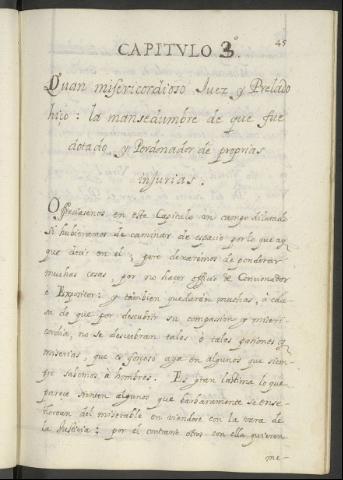 45
CAPITVLO 3º.
Quan misericordioso Juez y Prelado
hizo: la mansedumbre de que fue
dotado y Perdonador de proprias
injurias.
Ofrecíasenos en este Capitulo un campo dilatado
si hubieramos de caminar de espacio por lo que ay
que decir en el; pero dexaremos de ponderar
muchas cosas, por no hacer officio de
o Expositor: y tambien quedarán muchas, a cau
sa de que por descubrir su compasion y miseri
cordia, no se descubran tales o tales pasiones y
miserias, que es forçoso aya en algunos que siem
pre sabemos a hombres. Es gran lastima lo que
parece sienten algunos que barbaramente se ense
ñorean del miserable en viendose con la vara de
la Justicia: por el contrario otros con ella quieren
me-